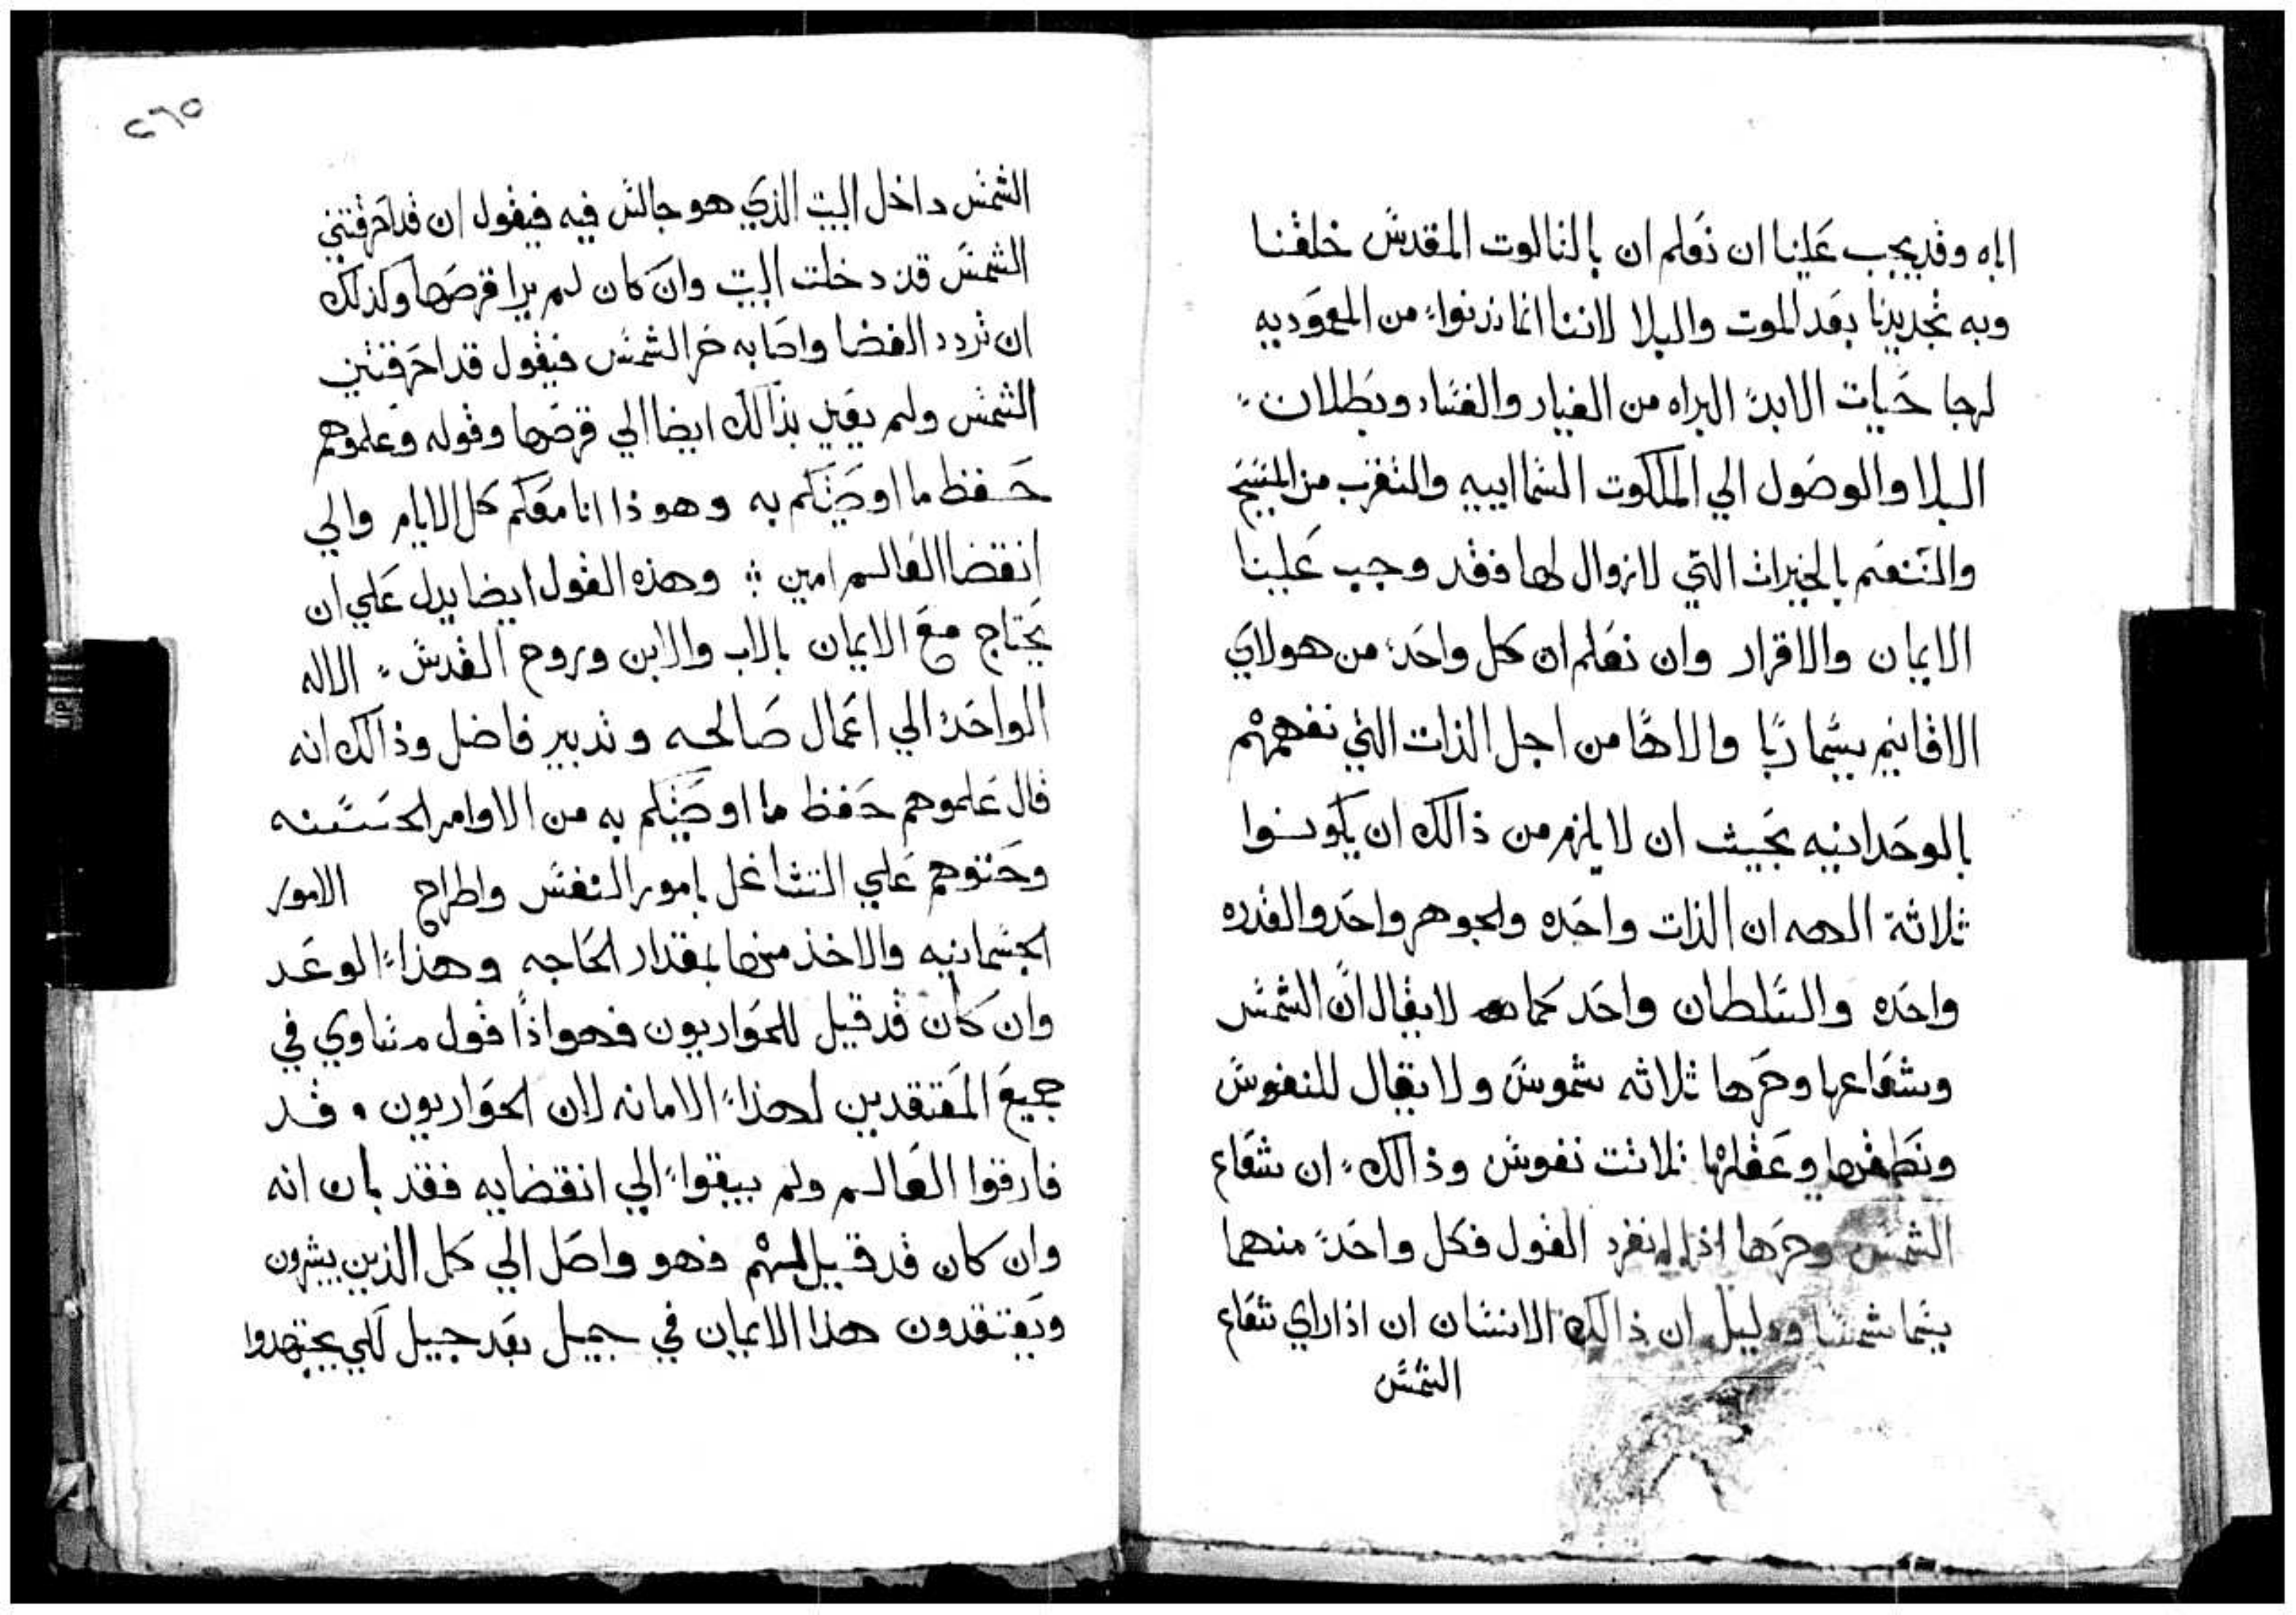 الاه وقد يجب علينا ان نعلم ان بالثالوت المقدس خلقنا
وبه تجديدنا بعد الموت والبلا لاننا انما ندنوا من المعموديه
لرجا حيات الابد البراه من الغيار والفساد وبطلان
البلا والوصول الي الملكوت السماييه والتقرب من المسيح
والتنعم بالخيرات التي لا زوال لها فقد وجب علينا
الايمان والاقرار وان نعلم ان كل واحد من هولاي
الاقانيم يسما ربا والاها من اجل الذات التي نفهمهم
بالوحدانيه بحيث ان لا يلزم من ذالك ان يكونوا
ثلاثة الهه ان الذات واحده والجوهر واحد والقدره
واحده والسلطان واحد كما لا يقال ان الشمس
وشعاعها وحرها ثلاثه شموس ولا يقال للنفوس
ونطقها وعقلها ثلاثت نفوس وذالك ان شعاع
الشمس وحرها اذا انفرد القول فكل واحد منهما
يسما شمسا ودليل ان ذالك الانسان ان اذا راي شعاع
الشمس
٢٦٥
الشمس داخل البيت الذي هو جالس فيه فيقول ان قد احرقتني
الشمس قد دخلت البيت وان كان لم يرا قرصها وكذلك
ان تردد الفضا واصابه حر الشمس فيقول قد احرقتني
الشمس ولم يعني بذالك ايضا الي قرصها وقوله وعلموهم
حفظ ما اوصيتكم به وهوذا انا معكم كل الايام والي
انقضا العالم امين وهذه القول ايضا يدل علي ان
يحتاج مع الايمان بالاب والابن وروح القدس الاله
الواحد الي اعمال صالحه وتدبير فاضل وذالك انه
قال علموهم حفظ ما اوصيتكم به من الاوامر الحسنه
وحتوهم علي التشاغل بامور النفس واطراح الامور
الجسمانيه والاخذ منها بمقدار الحاجه وهذا الوعد
وان كان قد قيل للحواريون فهو اذا قول متساوي في
جميع المعتقدين لهذا الامانه لان الحواريون وقد
فارقوا العالم ولم يبقوا الي انقضايه فقد بان انه
وان كان قد قيل لهم فهو واصل الي كل الذين يبشرون
ويعتقدون هذا الايمان في جيل بعد جيل لكي يجتهدوا